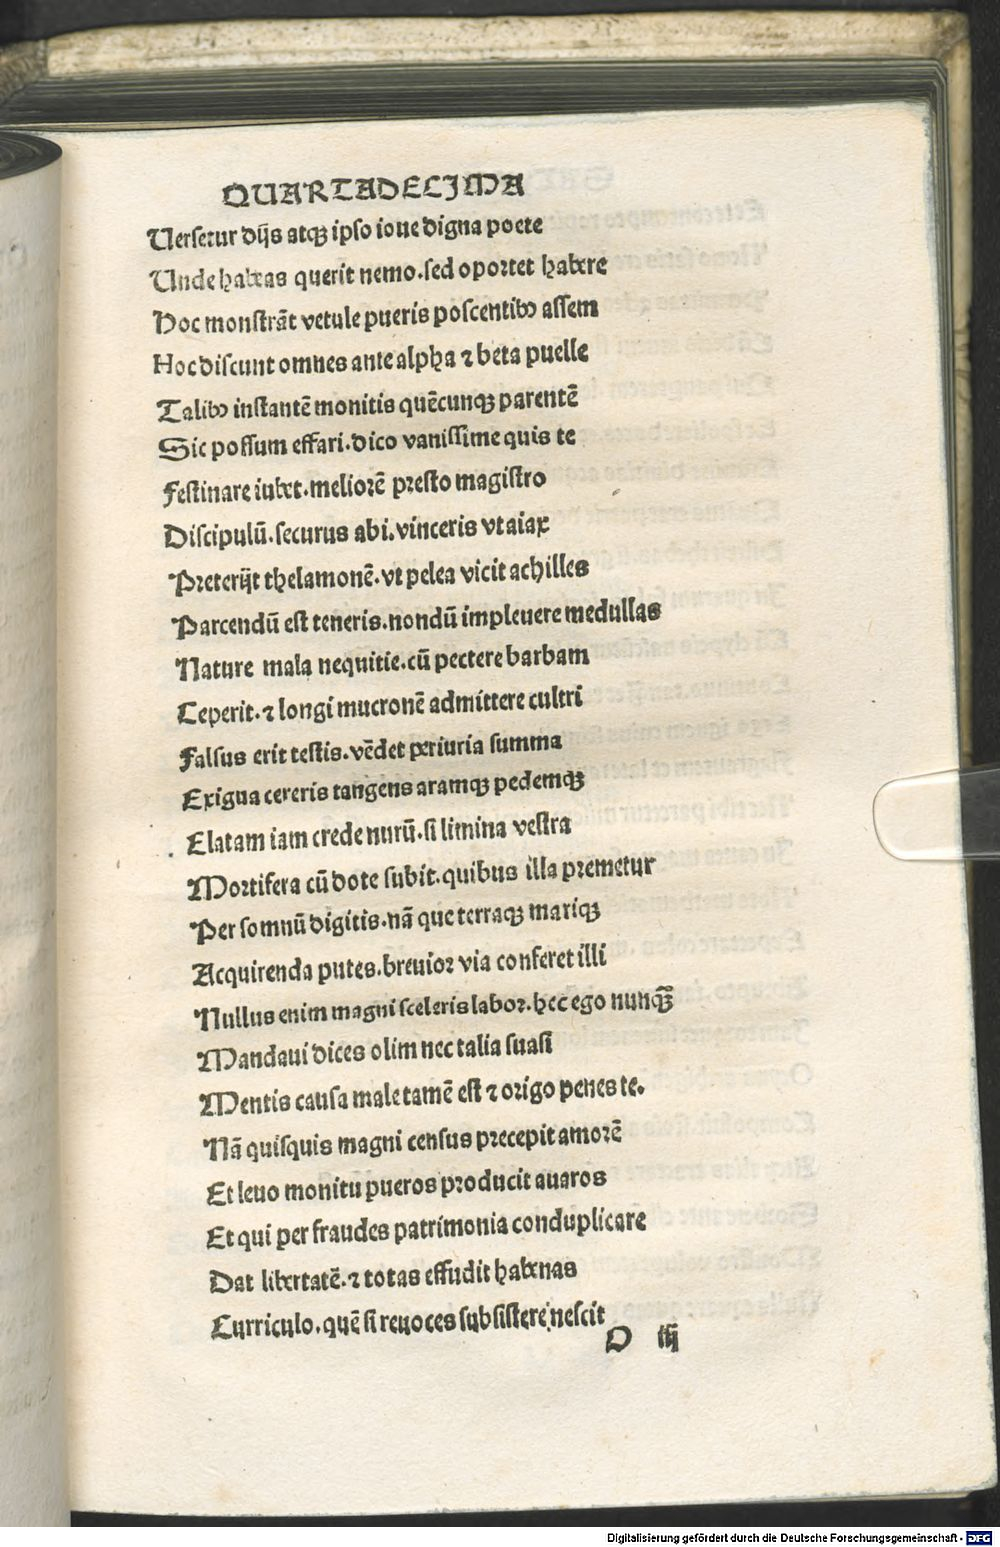 QUARTADECIMA
Uersetur dijs atqꝫ ipso ioue digna poete
Unde habeas querit nemo. sed oportet habere
Hoc monstrãt vetule pueris poscentibꝰ assem
Hoc discunt omnes ante alpha ⁊ beta puelle
Talibꝰ instantẽ monitis quẽcunqꝫ parentẽ
Sic possum effari. dico vanissime quis te
Festinare iubet. meliorẽ presto magistro
Discipulũ. securus abi. vinceris vt aiax
Preterijt thelamonẽ. vt pelea vicit achilles
Parcendũ est teneris. nondũ impleuere medullas
Nature mala nequitie. cũ pectere barbam
Ceperit. ⁊ longi mucronẽ admittere cultri
Falsus erit testis. vẽdet periuria summa
Exigua cereris tangens aramqꝫ pedemqꝫ
Elatam iam crede nurũ. si limina vestra
Mortifera cũ dote subit. quibus illa premetur
Per somnũ digitis. nã que terraqꝫ mariqꝫ
Acquirenda putes. breuior via conferet illi
Nullus enim magni sceleris labor. hec ego nunqꝫ̃
Mandaui dices olim nec talia suasi
Mentis causa male tamẽ est ⁊ origo penes te.
Nã quisquis magni census precepit amorẽ
Et leuo monitu pueros producit auaros
Et qui per fraudes patrimonia conduplicare
Dat libertatẽ. ⁊ totas effudit habenas
Curriculo. quẽ si reuoces subsistere nescit
O iij
Digitalisierung gefördert durch die Deutsche Forschungsgemeinschaft - DFG